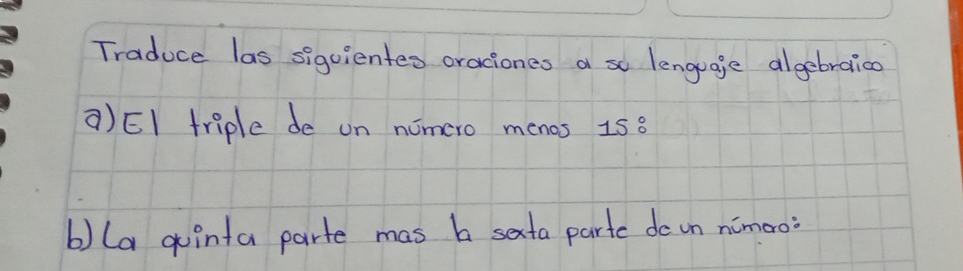 Traduce las siguientes oraciones a su lenguaje algebraico
a) El triple de un número menos 15:
b) La quinta parte mas la sexta parte de un número: